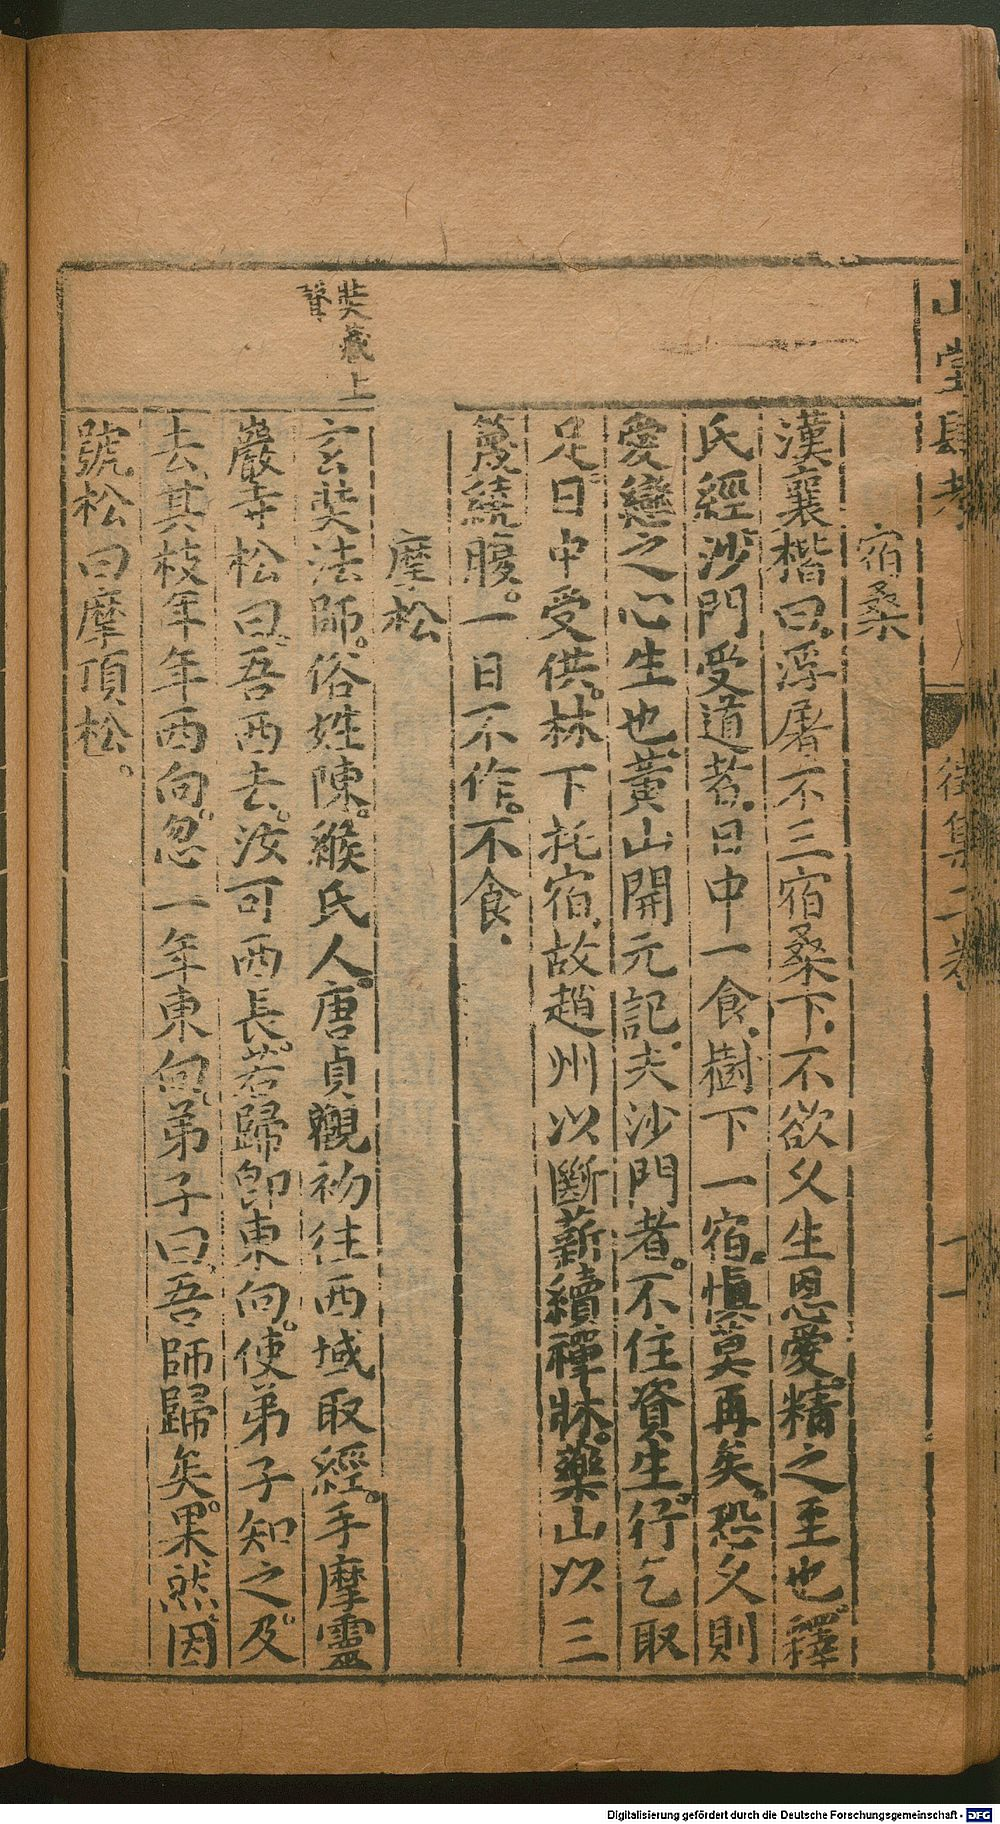 山堂肆考
徵集一卷
十一
宿桑
漢襄楷曰浮屠不三宿桑下不欲久生恩愛精之至也釋
氏經沙門受道者日中一食樹下一宿慎莫再矣恐久則
愛戀之心生也黃山開元記夫沙門者不住資生行乞取
足日中受供林下托宿故趙州以斷薪續禪牀藥山以三
篾繞腹一日不作不食
摩松
奘藏上
聲
玄奘法師。俗姓陳。緱氏人。唐貞觀初往西域取經。手摩靈
巖寺松曰。吾西去。汝可西長。若歸即東向。使弟子知之。及
去。其枝年年西向。忽一年東向。弟子曰。吾師歸矣。果然。因
號松曰摩頂松。
Digitalisierung gefördert durch die Deutsche Forschungsgemeinschaft - DFG